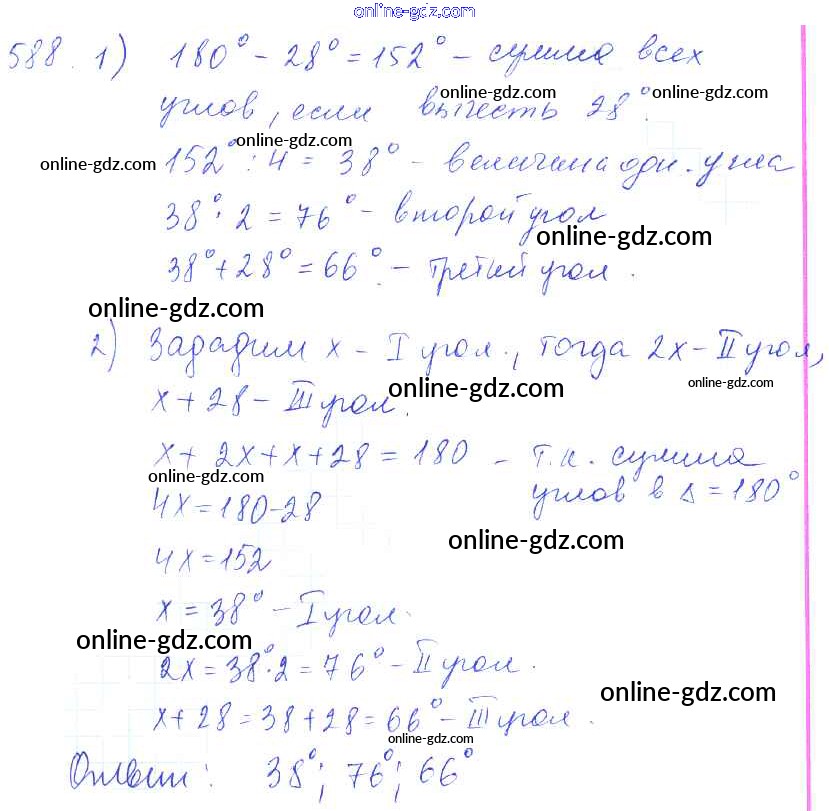 online-gdz.com
588. 1) 180° - 28° = 152° - сумма всех
online-gdz.com online-gdz.com
углов, если вычесть 28°.
online-gdz.com
online-gdz.com 152° : 4 = 38° - величина одн. угла
38° · 2 = 76° - второй угол
online-gdz.com
38° + 28° = 66° - третий угол.
online-gdz.com
2) Зададим x - I угол, тогда 2x - II угол,
online-gdz.com online-gdz.com
x + 28 - III угол.
x + 2x + x + 28 = 180 - т.к. сумма
online-gdz.com
углов в Δ = 180°
4x = 180-28
online-gdz.com
4x = 152
x = 38° - I угол.
online-gdz.com
2x = 38° · 2 = 76° - II угол.
online-gdz.com
x + 28 = 38 + 28 = 66° - III угол.
online-gdz.com
Ответ: 38°; 76°; 66°